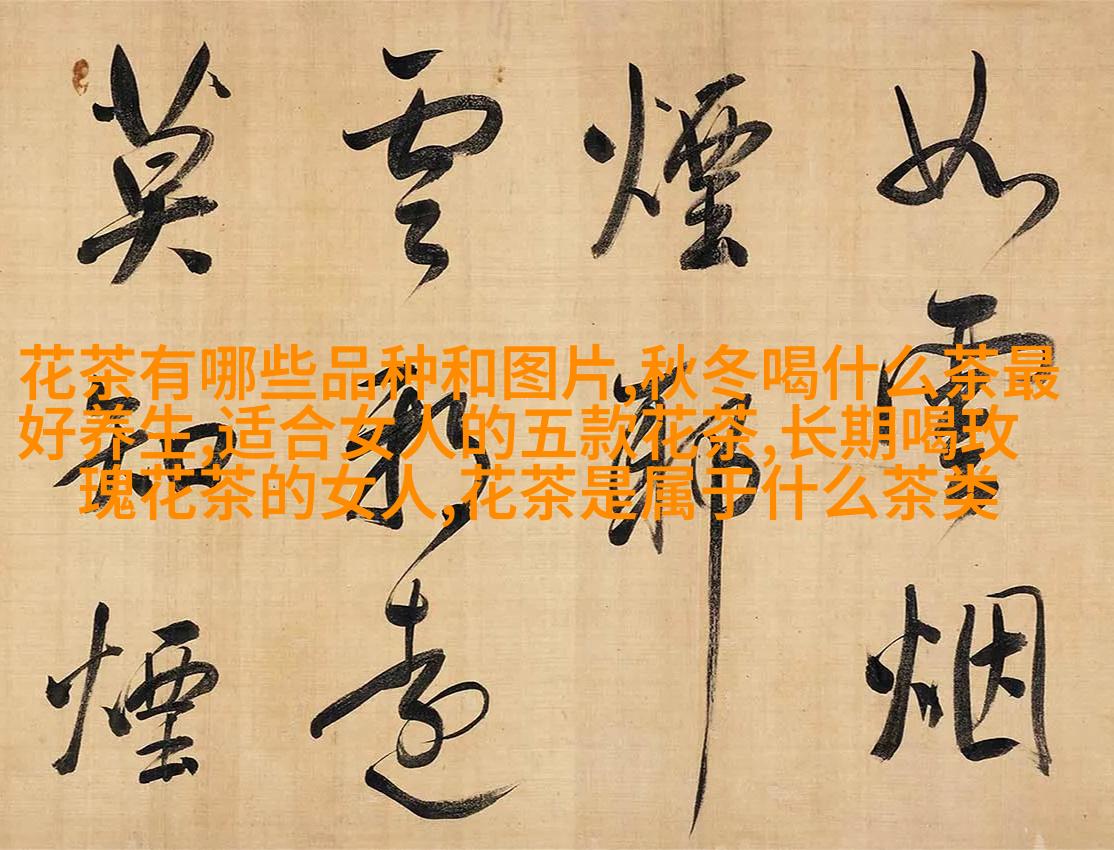 花茶有哪些品种和图片,秋冬喝什么茶最
好养生,适合女人的五款花茶,长期喝玫
瑰花茶的女人,花茶是属于什么茶类
如雲烟
煙
雲遠
莫煙